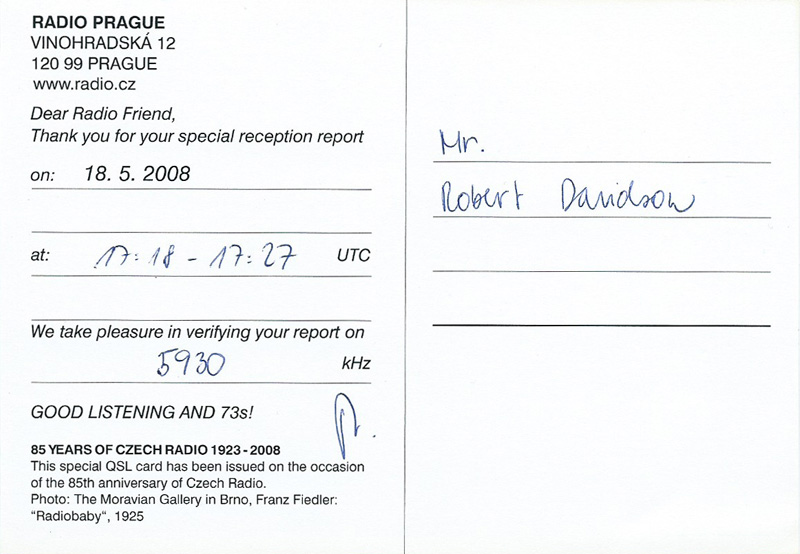 RADIO PRAGUE
VINOHRADSKÁ 12
120 99 PRAGUE
www.radio.cz
Dear Radio Friend,
Thank you for your special reception report
on: 18. 5. 2008
at: 17:18 - 17:27 UTC
We take pleasure in verifying your report on
5930 kHz
GOOD LISTENING AND 73s!
85 YEARS OF CZECH RADIO 1923 - 2008
This special QSL card has been issued on the occasion
of the 85th anniversary of Czech Radio.
Photo: The Moravian Gallery in Brno, Franz Fiedler:
"Radiobaby", 1925
Mr.
Robert Davidson